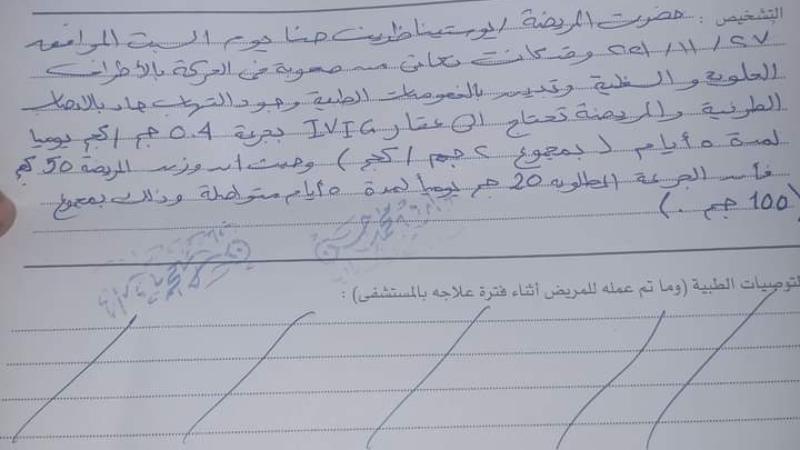 التشخيص : حضرت المريضة / يوستينا ظريف حنا يوم السبت الموافق
٢٧ / ١١ / ٢٠٢١ وقد كانت تعانى من صعوبة فى الحركة بالأطراف
العلوية والسفلية وتبين بالفحوصات الطبية وجود التهاب حاد بالأعصاب
الطرفية والمريضة تحتاج الى عقار IVIG بجرعة 0.4 جم / كجم يوميا
لمدة ٥ أيام ( بمجموع ٢ جم / كجم ) وحيث أن وزن المريضة 50 كجم
فأن الجرعة المطلوبه 20 جم يومياً لمدة ٥ أيام متواصلة وذلك بمجموع
(100 جم .)
التوصيات الطبية (وما تم عمله للمريض أثناء فترة علاجه بالمستشفى) :